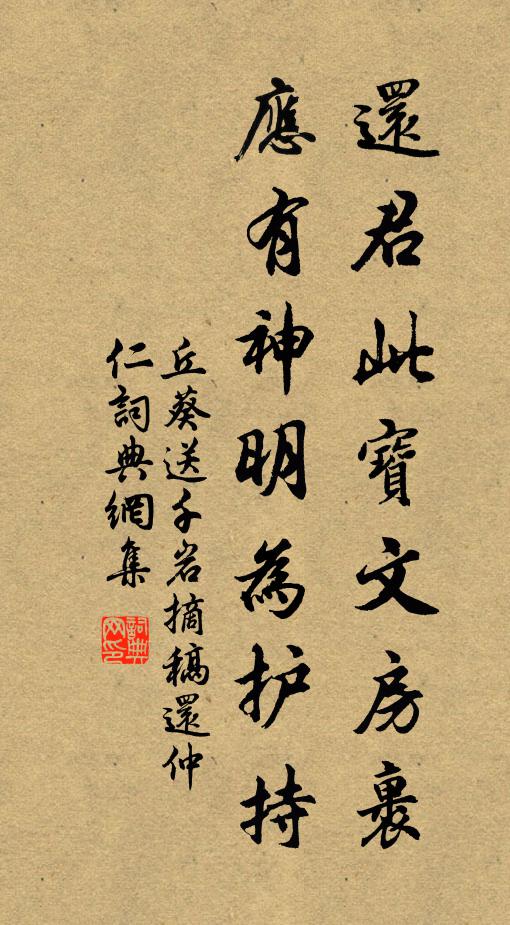 還君此寶文房裹
應有神明為护持
丘葵送千岩摘稿還仲
仁詞典網集
詞典网印